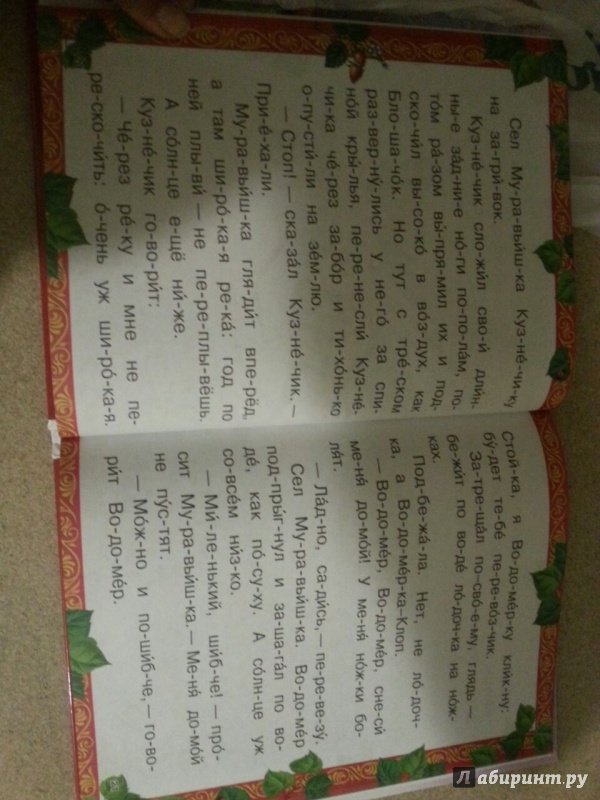 Сел Му-ра-вьи́ш-ка Куз-не́-чи-ку
на за-гри́-вок.
Куз-не́-чик сло-жи́л сво-и́ дли́н-
ны-е за́д-ни-е но́-ги по-по-ла́м, по-
то́м ра́-зом вы́-пря-мил их и под-
ско-чи́л вы-со-ко́ в во́з-дух, как
Бло-ша-чо́к. Но тут с тре́-ском
раз-вер-ну́-лись у не-го́ за спи-
но́й кры́-лья, пе-ре-не-сли́ Куз-не́-
чи-ка че́-рез за-бо́р и ти-хо́нь-ко
о-пу-сти́-ли на зе́м-лю.
— Стоп! — ска-за́л Куз-не́-чик. —
При-е́-ха-ли.
Му-ра-вьи́ш-ка гля-ди́т впе-рёд,
а там ши-ро́-ка-я ре-ка́: год по
ней плы-ви́ — не пе-ре-плы-вёшь.
А со́лн-це е-щё ни́-же.
Куз-не́-чик го-во-ри́т:
— Че́-рез ре́-ку и мне не пе-
ре-ско-чи́ть: о́-чень уж ши-ро́-ка-я.
Стой-ка, я Во-до-ме́р-ку кли́к-ну:
бу́-дет те-бе́ пе-ре-во́з-чик.
За-тре-ща́л по-сво́-е-му, глядь —
бе-жи́т по во-де́ ло́-доч-ка на но́ж-
ках.
Под-бе-жа́-ла. Нет, не ло́-доч-
ка, а Во-до-ме́р-ка-Клоп.
— Во-до-ме́р, Во-до-ме́р, сне-си́
ме-ня́ до-мо́й! У ме-ня́ но́ж-ки бо-
ля́т.
— Ла́д-но, са-ди́сь, — пе-ре-ве-зу́.
Сел Му-ра-вьи́ш-ка. Во-до-ме́р
под-пры́г-нул и за-ша-га́л по во-
де́, как по́-су-ху. А со́лн-це уж
со-все́м ни́з-ко.
— Ми́-ле-нький, ши́б-че! — про́-
сит Му-ра-вьи́ш-ка. — Ме-ня́ до-мо́й
не пу́с-тят.
— Мо́ж-но и по-ши́б-че, — го-во-
ри́т Во-до-ме́р.
Лабиринт.ру